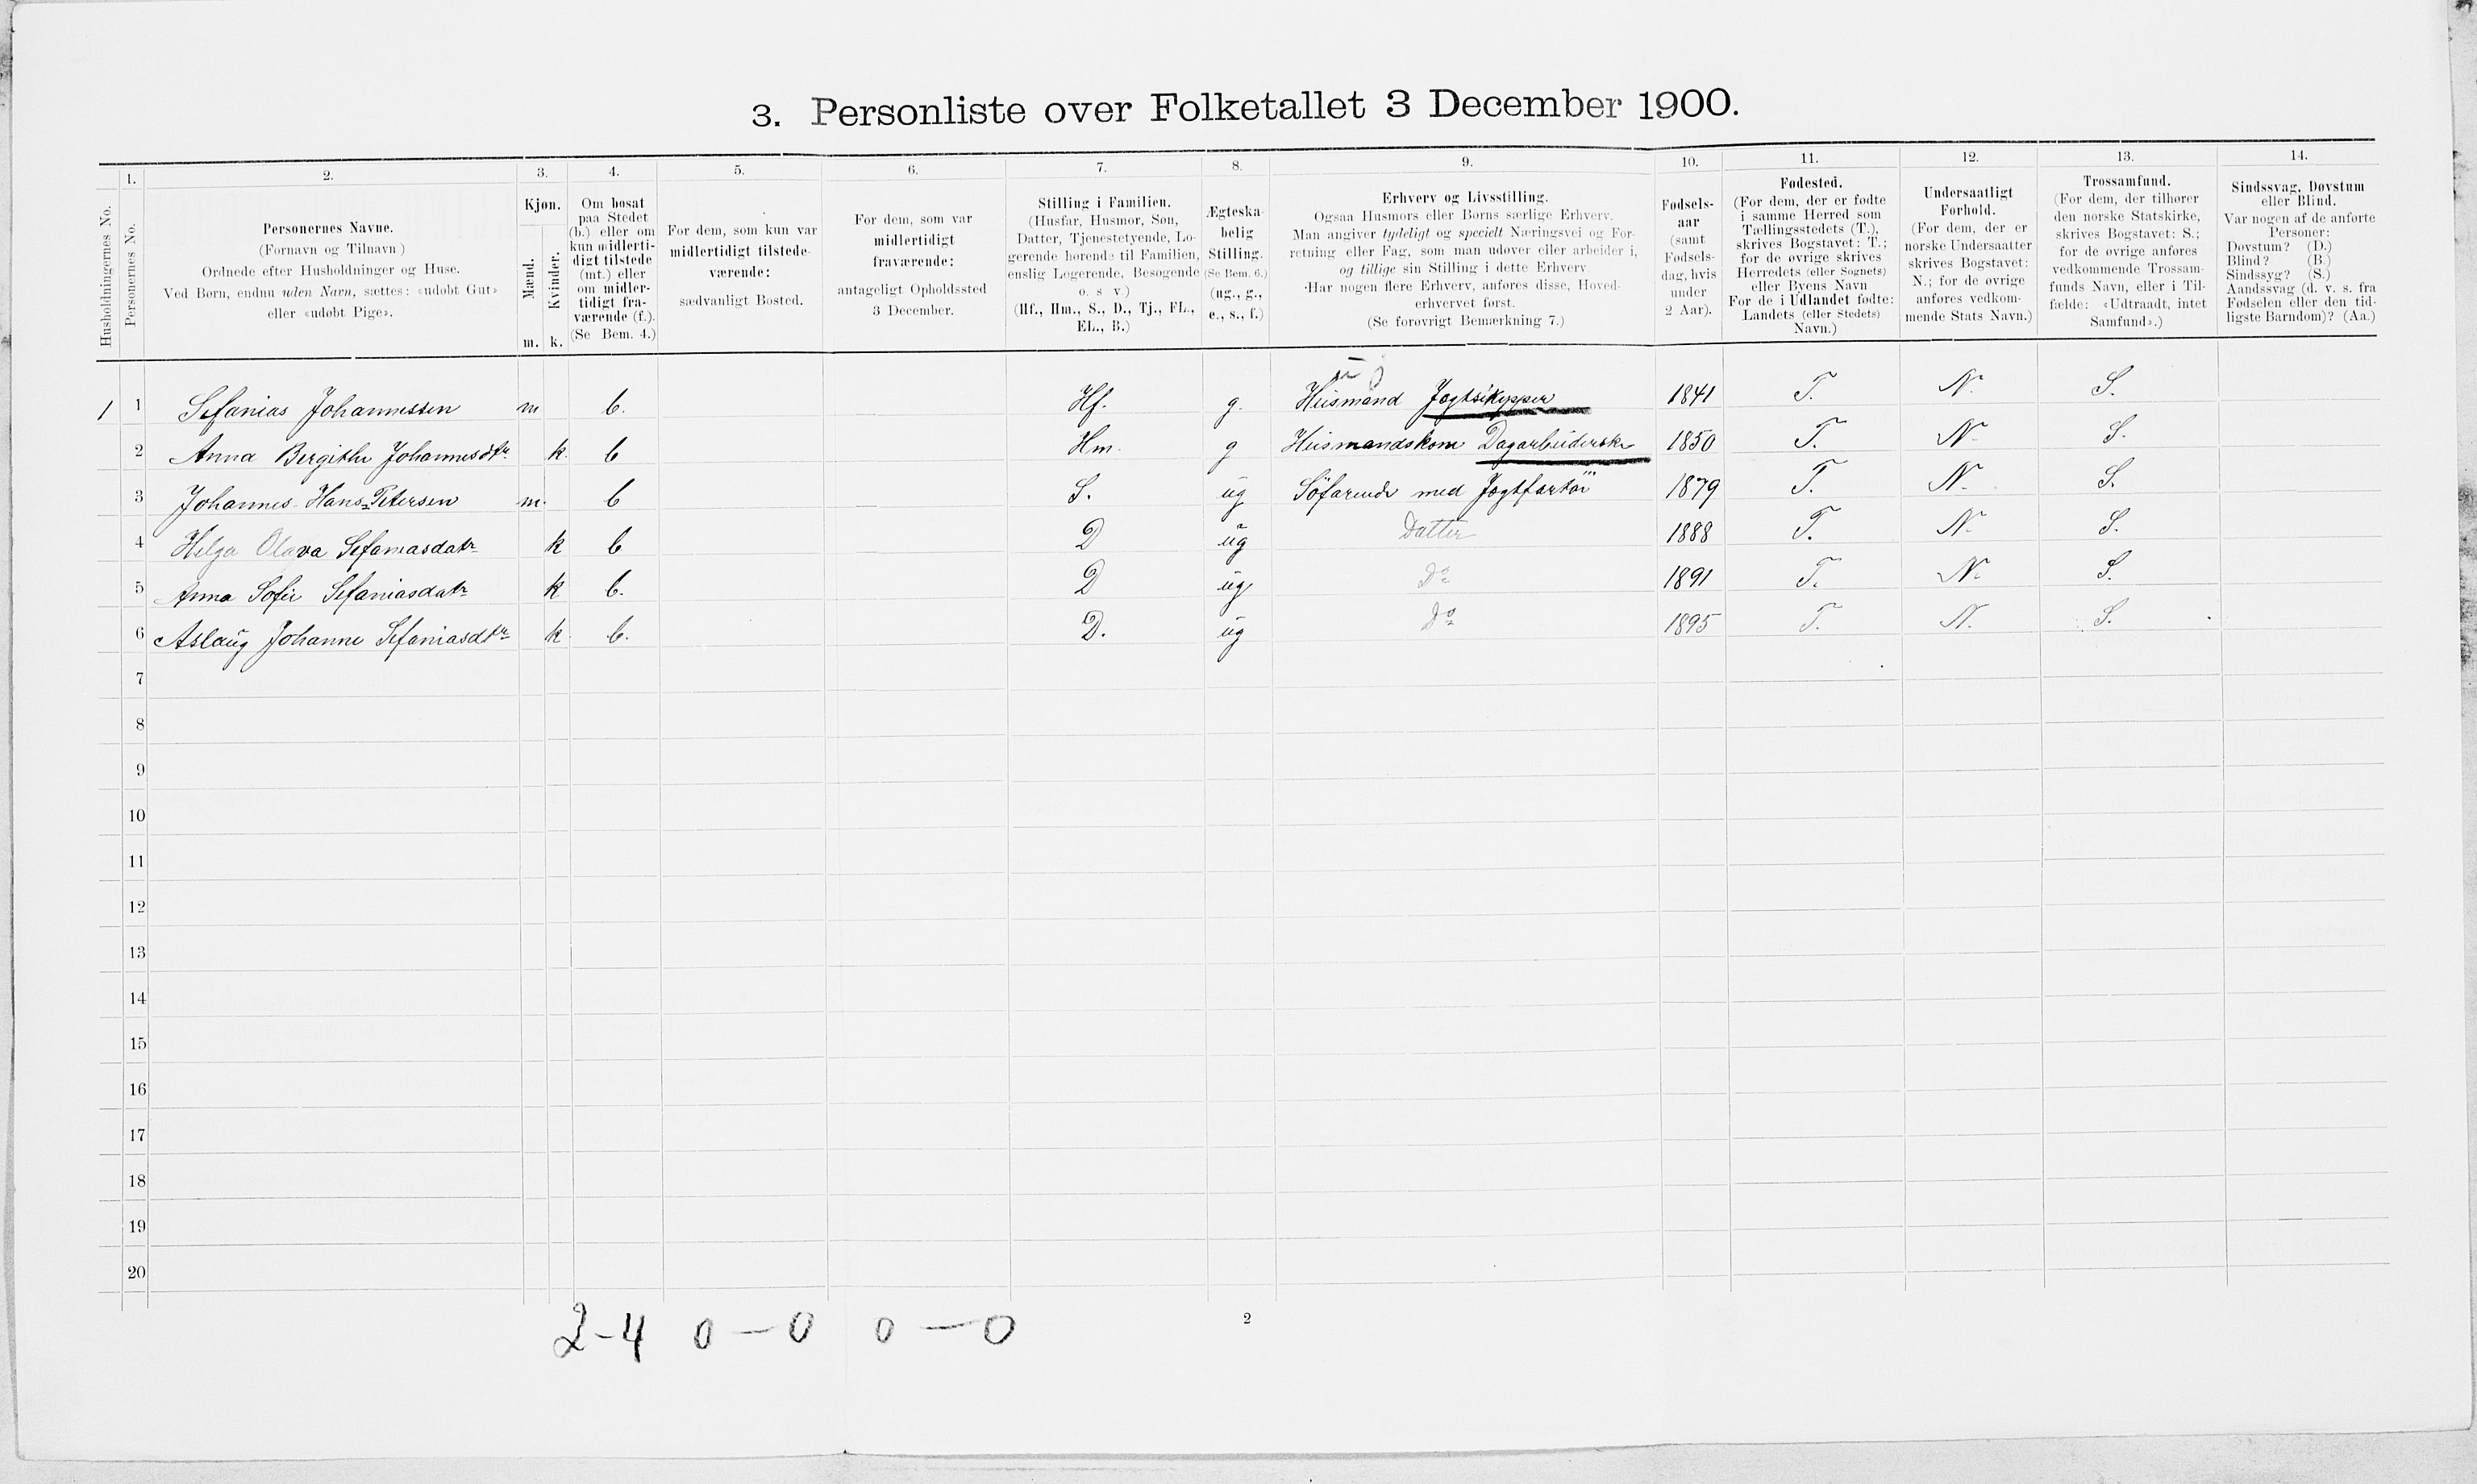 3. Personliste over Folketallet 3 December 1900.
Husholdningernes No.
1.
Personernes No.
2.
Personernes Navne.
(Fornavn og Tilnavn)
Ordnede efter Husholdninger og Huse.
Ved Børn, endnu uden Navn, sættes: «udøbt Gut»
eller «udøbt Pige».
3.
Kjøn.
Mænd.
Kvinder.
m. k.
4.
Om bosat
paa Stedet
(b.) eller om
kun midlerti-
digt tilstede
(mt.) eller
om midler-
tidigt fra-
værende (f.).
(Se Bem. 4.)
5.
For dem, som kun var
midlertidigt tilstede-
værende:
sædvanligt Bosted.
6.
For dem, som var
midlertidigt
fraværende:
antageligt Opholdssted
3 December.
7.
Stilling i Familien.
(Husfar, Husmor, Søn,
Datter, Tjenestetyende, Lo-
gerende hørende til Familien,
enslig Logerende, Besøgende
o. s v.)
(Hf., Hm., S., D., Tj., FL.,
EL., B.)
8.
Ægteska-
belig
Stilling.
(Se Bem. 6.)
(ug., g.,
e., s., f.)
9.
Erhverv og Livsstilling.
Ogsaa Husmors eller Børns særlige Erhverv.
Man angiver tydeligt og specielt Næringsvei og For-
retning eller Fag, som man udøver eller arbeider i,
og tillige sin Stilling i dette Erhverv.
Har nogen flere Erhverv, anføres disse, Hoved-
erhvervet først.
(Se forøvrigt Bemærkning 7.)
10.
Fødsels-
aar
(samt
Fødsels-
dag, hvis
under
2 Aar).
11.
Fødested.
(For dem, der er fødte
i samme Herred som
Tællingsstedets (T.),
skrives Bogstavet: T.;
for de øvrige skrives
Herredets (eller Sognets)
eller Byens Navn
For de i Udlandet fødte:
Landets (eller Stedets)
Navn.)
12.
Undersaatligt
Forhold.
(For dem, der er
norske Undersaatter
skrives Bogstavet:
N.; for de øvrige
anføres vedkom-
mende Stats Navn.)
13.
Trossamfund.
(For dem, der tilhører
den norske Statskirke,
skrives Bogstavet: S.;
for de øvrige anføres
vedkommende Trossam-
funds Navn, eller i Til-
fælde: «Udtraadt, intet
Samfund».)
14.
Sindssvag, Døvstum
eller Blind.
Var nogen af de anførte
Personer:
Døvstum? (D.)
Blind? (B.)
Sindssyg? (S.)
Aandssvag (d. v. s. fra
Fødselen eller den tid-
ligste Barndom)? (Aa.)
1 1 Sefanias Johannessen m b. Hf. g. Husmand Jagtskipper 1841 T. N. S.
2 Anna Bergithe Johannesdtr k. b Hm. g Husmandskone Dagarbeiderske 1850 T. N. S.
3 Johannes Hans Petersen m. b S. ug Söfarende med Jagtfartöi 1879 T. N. S.
4 Helga Olava Sefaniasdatr k b D ug Datter 1888 T. N. S.
5 Anna Sofie Sefaniasdatr k b. D ug Do 1891 T. N. S.
6 Aslaug Johanne Sefaniasdtr k b. D. ug Do 1895 T. N. S.
7
8
9
10
11
12
13
14
15
16
17
18
19
20
2-4 0 — 0 0 — 0
2